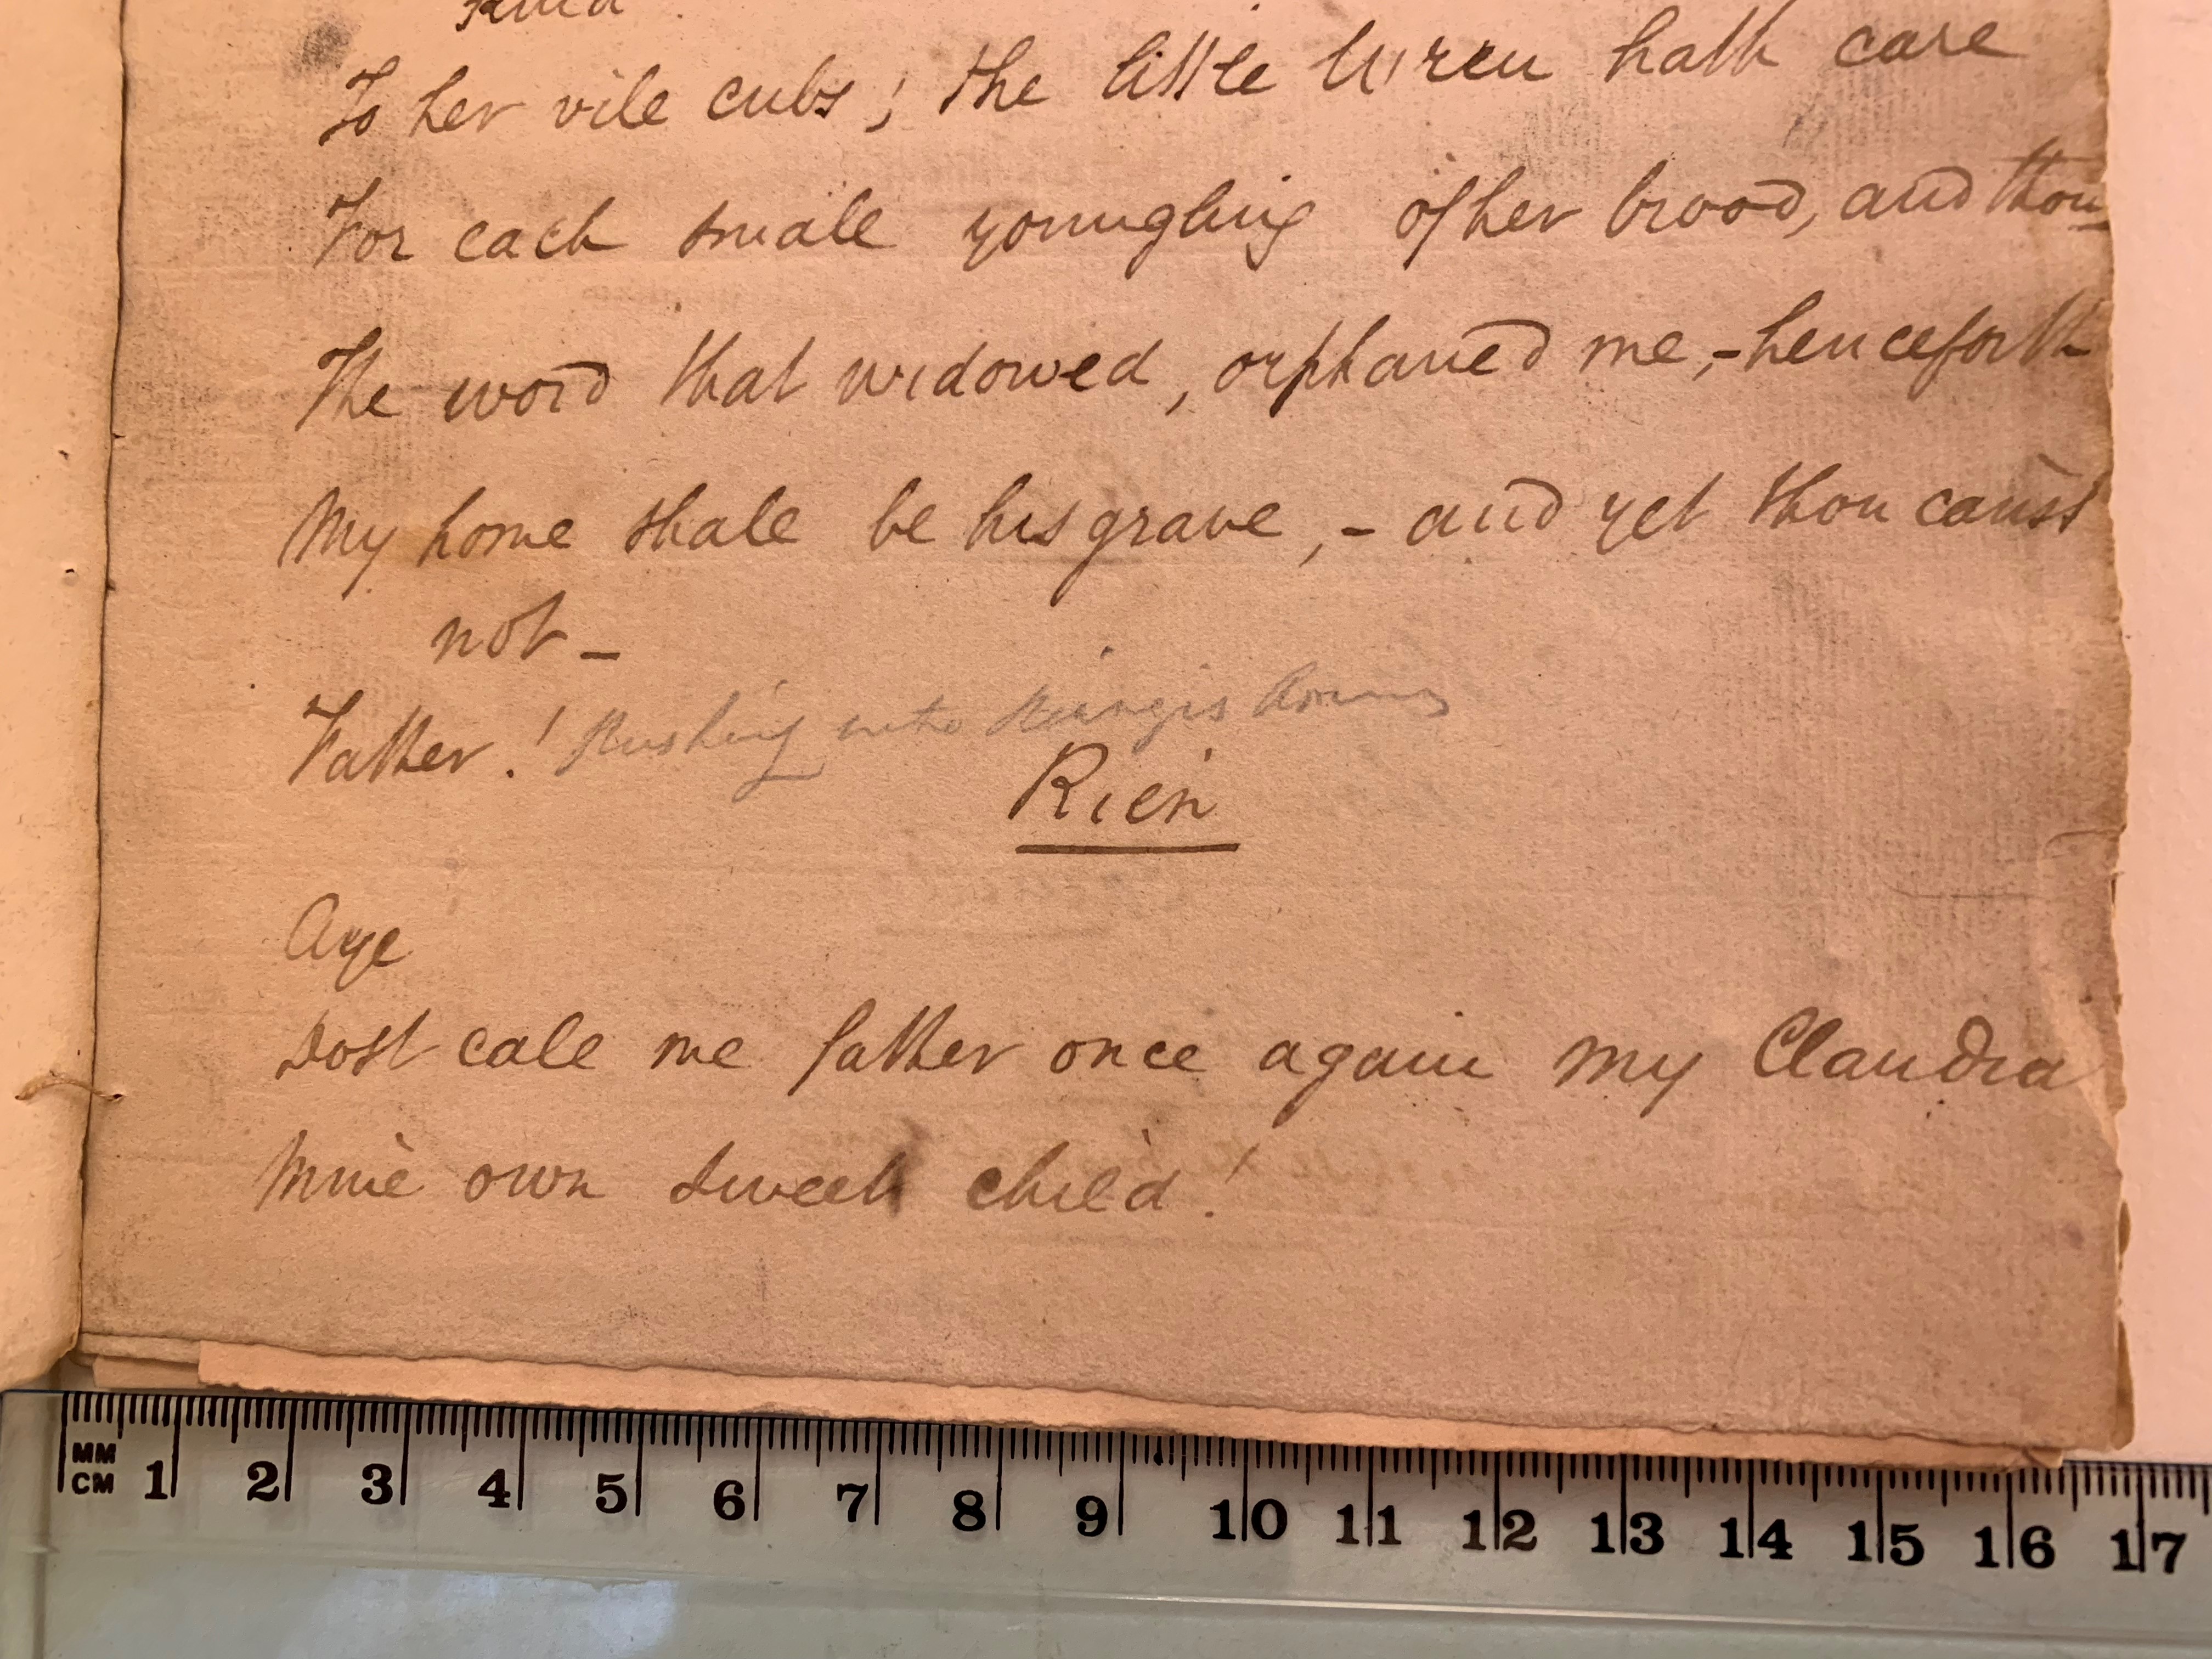 To her vile cubs; the little Wren hath care
For each small youngling of her brood, and thou_
The word that widowed, orphaned me,- henceforth
My home shall be his grave,- and yet thou canst
not_
Father! Rushing into Rienzi's Arms
Rien
Aye
Dost call me father once again my Claudia
Mine own sweet child!
MM
CM 1 2 3 4 5 6 7 8 9 10 11 12 13 14 15 16 17